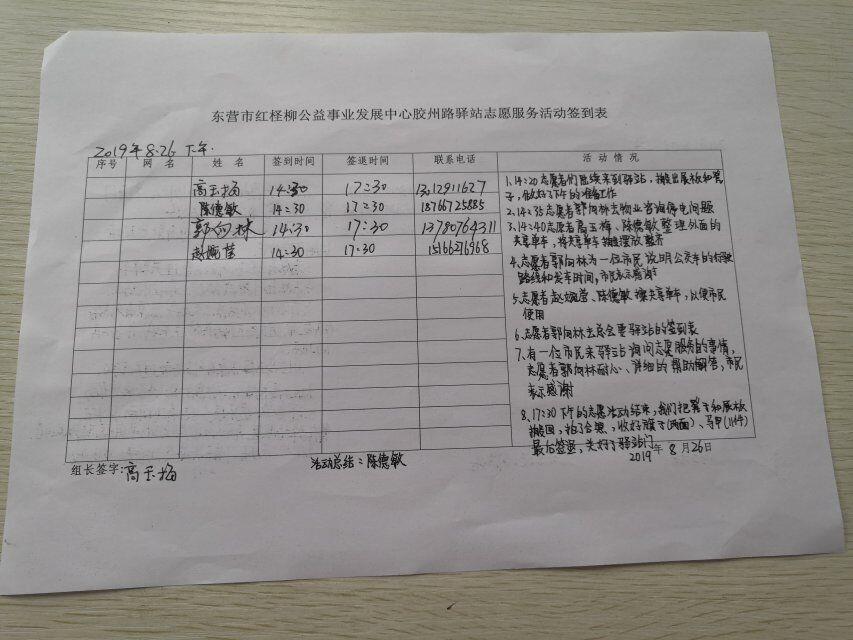 东营市红柽柳公益事业发展中心胶州路驿站志愿服务活动签到表
2019年8.26 下午.
序号 网名 姓名 签到时间 签退时间 联系电话 活动情况
高玉梅 14:30 17:30 13012911627
陈德敏 14:30 17:30 18766725885
郭向林 14:30 17:30 13780764311
赵婉莹 14:30 17:30 15166271968
1、14:20志愿者们陆续来到驿站，搬出展板和凳
子，做好了下午的准备工作
2、14:35志愿者郭向林去物业咨询停电问题
3、14:40志愿者高玉梅、陈德敏整理外面的
共享单车，将共享单车搬摆放整齐
4、志愿者郭向林为一位市民说明公交车的行驶
路线和发车时间，市民表示感谢
5、志愿者赵婉莹、陈德敏擦共享单车，以便市民
使用
6、志愿者郭向林去总会要驿站的签到表
7、有一位市民来驿站询问志愿服务的事情，
志愿者郭向林耐心、详细的帮助解答，市民
表示感谢
8、17:30下午的志愿活动结束，我们把凳子和展板
搬回，拍了合照，收好旗子(两面)、马甲(11件)
最后签退，关好了驿站门
2019年8月26日
组长签字：高玉梅
活动总结：陈德敏